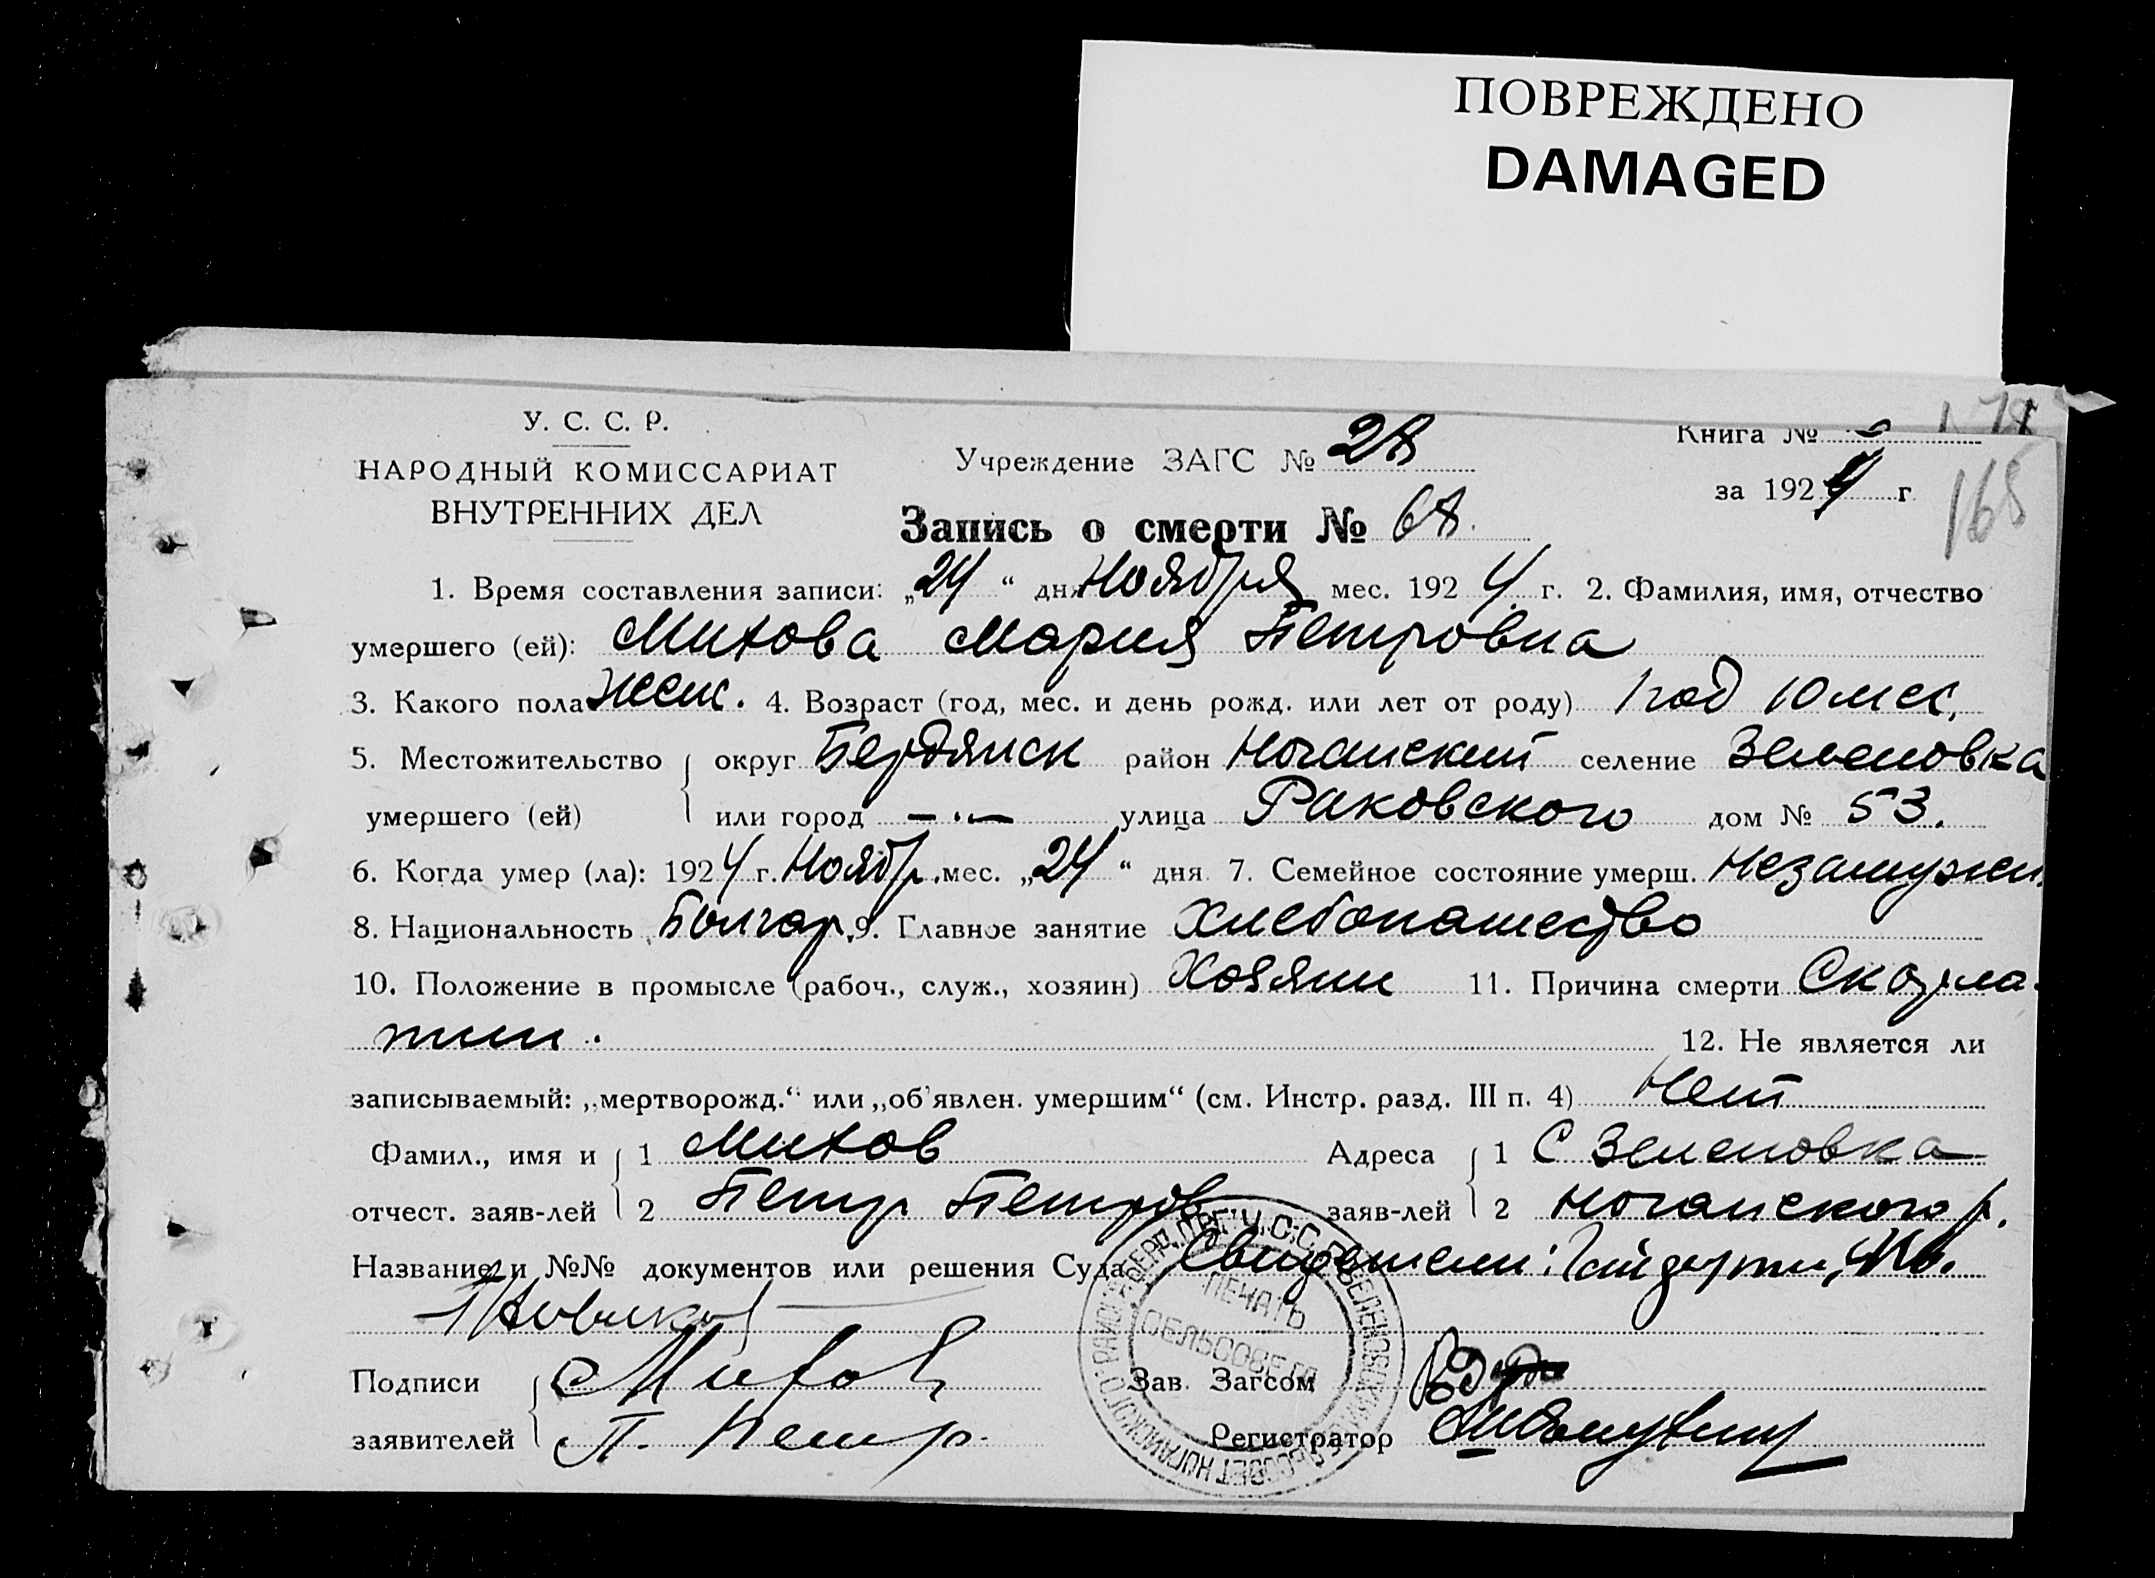 ПОВРЕЖДЕНО
DAMAGED
У. С. С. Р.
НАРОДНЫЙ КОМИССАРИАТ
ВНУТРЕННИХ ДЕЛ
Учреждение ЗАГС № 28
Книга №
за 1924 г
165
Запись о смерти № 68.
1. Время составления записи: „24“ дня Ноября мес. 1924 г. 2. Фамилия, имя, отчество
умершего (ей): Митова Мария Петровна
3. Какого пола Женс. 4. Возраст (год, мес. и день рожд. или лет от роду) 1 год 10 мес.
5. Местожительство округ Бердянск район Ногайский селение Зеленовка
умершего (ей) или город —·— улица Раковского дом № 53.
6. Когда умер (ла): 1924 г. Ноябр. мес. „24“ дня 7. Семейное состояние умерш. Незамужн.
8. Национальность Болгар. 9. Главное занятие Хлебопашество
10. Положение в промысле (рабоч., служ., хозяин) Хозяин 11. Причина смерти Скарла-
тин. 12. Не является ли
записываемый: „мертворожд.“ или „об'явлен. умершим“ (см. Инстр. разд. III п. 4) Нет
Фамил., имя и 1 Митов Адреса 1 С Зеленовка
отчест. заяв-лей 2 Петр Петров заяв-лей 2 Ногайского р.
Название и №№ документов или решения Суда Свидетели:
Подписи Митов Зав. Загсом
заявителей П. Петр. Регистратор
ПЕЧАТЬ
СЕЛЬСОВЕТА